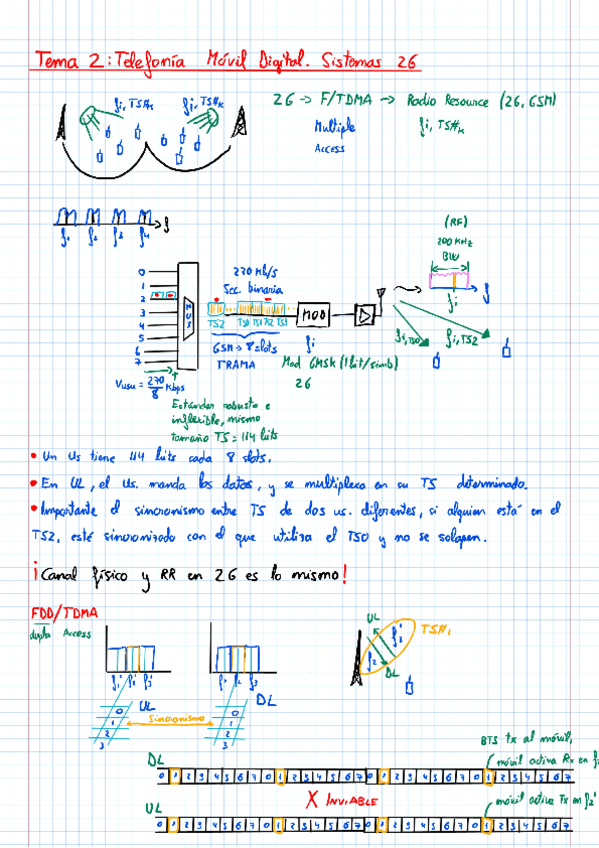 Tema 2: Telefonía Móvil Digital. Sistemas 2G
fi, TS#k
fi, TS#k
2G → F/TDMA → Radio Resource (2G, GSM)
Multiple
Access
fi, TS#k
f1 f2 f3 f4
f
0
1
2
3
4
5
6
7
MUX
270 kb/s
Sec. binaria
TS2
TS0 TS1 TS2 TS3
GSM → 8 slots
TRAMA
MOD
fi
Mod GMSK (1bit/simb)
2G
(RF)
200 KHz
BW
fi
f
fi, TS0
fi, TS2
Vusu = 270/8 Kbps
Estándar robusto e
inflexible, mismo
tamaño TS = 114 bits
• Un Us tiene 114 bits cada 8 slots.
• En UL, el us. manda los datos, y se multiplexa en su TS determinado.
• Importante el sincronismo entre TS de dos us. diferentes, si alguien está en el
TS2, esté sincronizado con el que utiliza el TS0 y no se solapen.
¡Canal físico y RR en 2G es lo mismo!
FDD/TDMA
duplex Access
f1' f2' f3'
UL
0
1
2
3
Sincronismo
f1 f2 f3
DL
0
1
2
3
UL
f2'
f2
DL
TS#1
BTS tx al móvil,
móvil activa Rx en f2
DL
0 1 2 3 4 5 6 7 0 1 2 3 4 5 6 7 0 1 2 3 4 5 6 7 0 1 2 3 4 5 6 7
X INVIABLE
móvil activa Tx en f2'
UL
0 1 2 3 4 5 6 7 0 1 2 3 4 5 6 7 0 1 2 3 4 5 6 7 0 1 2 3 4 5 6 7